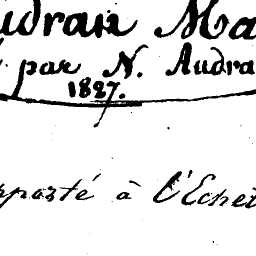 udran Ma
par N. Audra
1827.
pporté à l'Echel